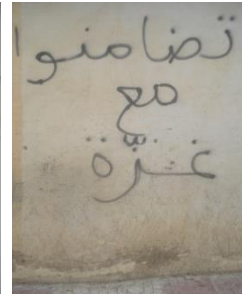 تضامنوا
مع
غزّة